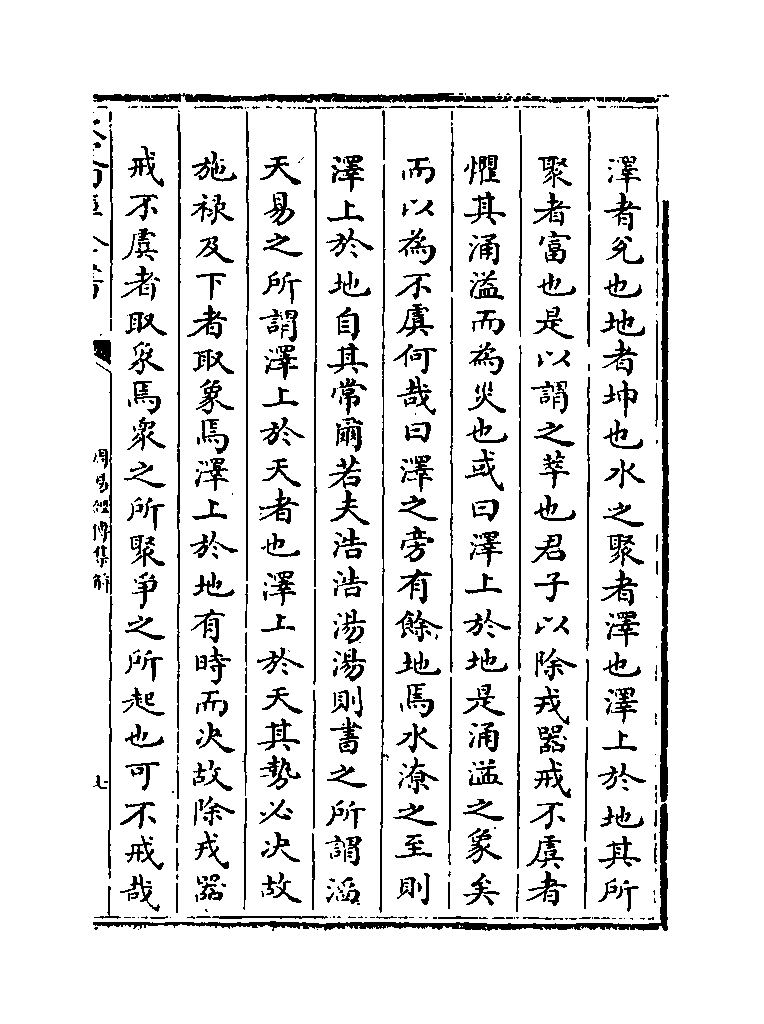 澤者兌也地者坤也水之聚者澤也澤上於地其所
聚者富也是以謂之萃也君子以除戎器戒不虞者
懼其涌溢而為災也或曰澤上於地是涌溢之象矣
而以為不虞何哉曰澤之旁有餘地焉水潦之至則
澤上於地自其常爾若夫浩浩湯湯則書之所謂滔
天易之所謂澤上於天者也澤上於天其勢必决故
施祿及下者取象焉澤上於地有時而决故除戎器
戒不虞者取象焉衆之所聚爭之所起也可不戒哉
周易經傳集解
七